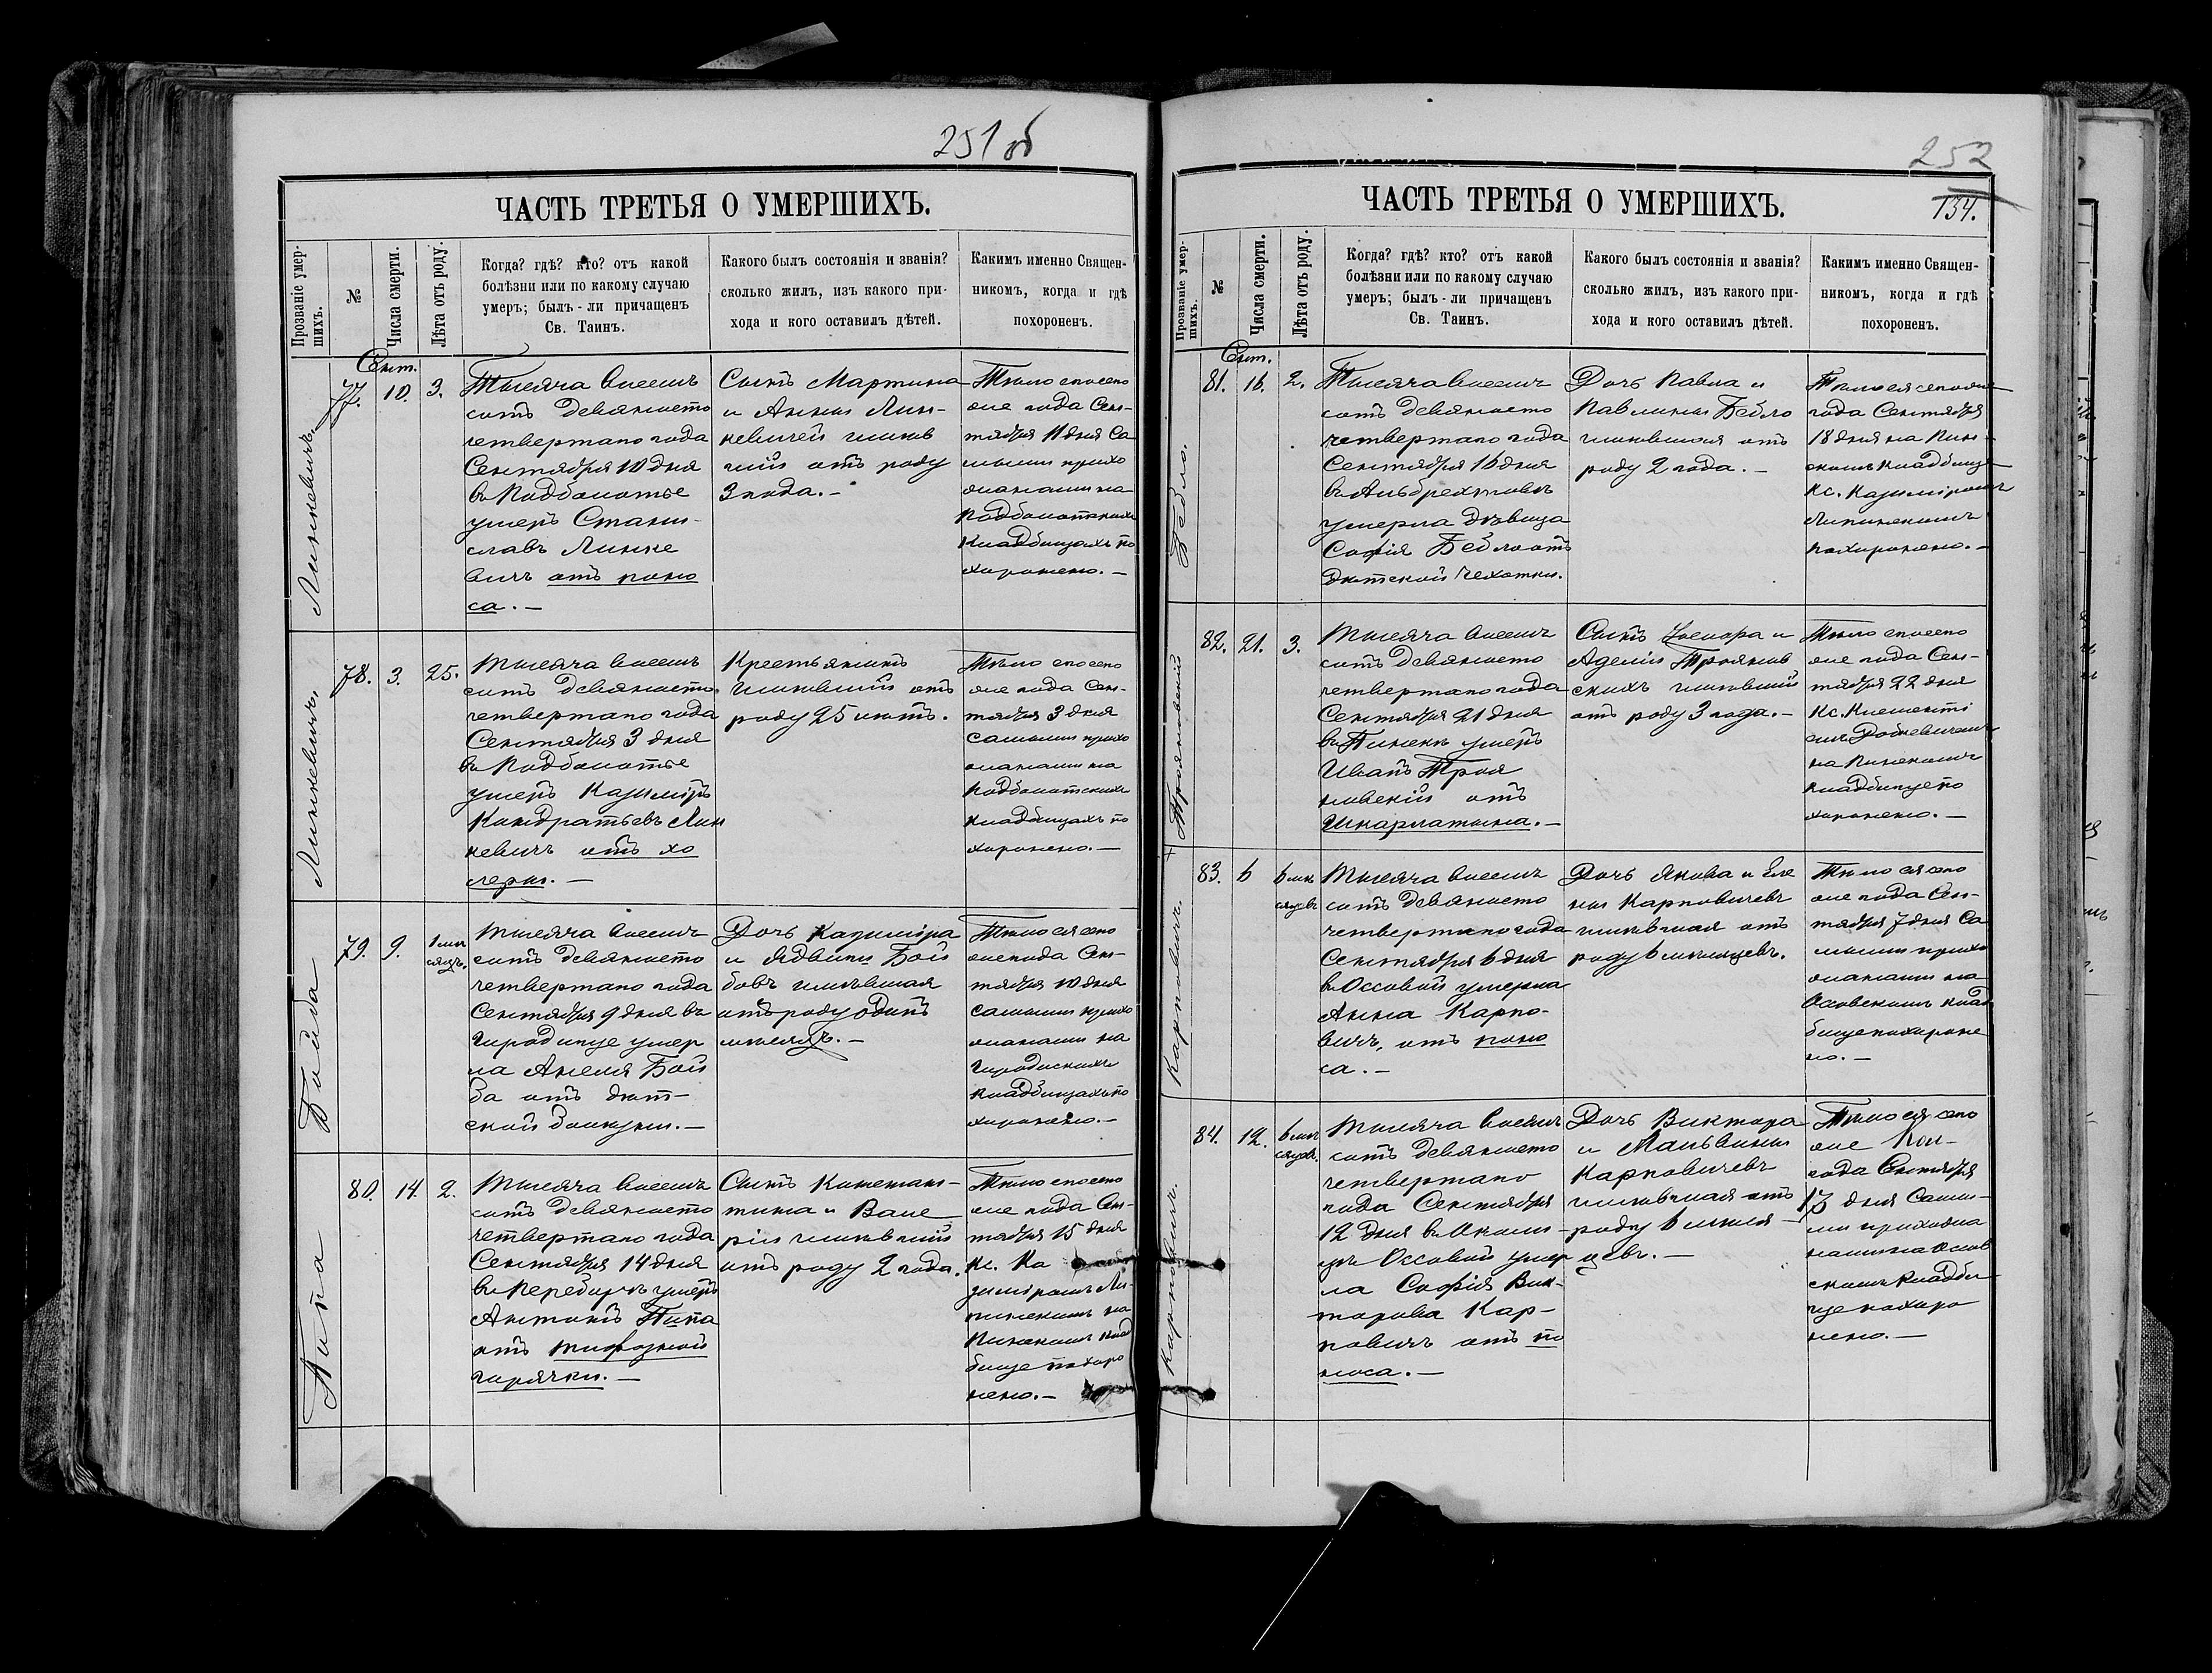 251 об
ЧАСТЬ ТРЕТЬЯ О УМЕРШИХЪ.
Прозваніе умер-
шихъ.
№
Числа смерти.
Лѣта отъ роду.
Когда? гдѣ? кто? отъ какой
болѣзни или по какому случаю
умеръ; былъ-ли причащенъ
Св. Таинъ.
Какого былъ состоянія и званія?
сколько жилъ, изъ какого при-
хода и кого оставилъ дѣтей.
Какимъ именно Священ-
никомъ, когда и гдѣ
похороненъ.
Сент.
Линкевичъ.
77.
10.
3.
Тысяча восемь
сотъ девяносто
четвертаго года
Сентября 10 дня
въ Подболотье
умеръ Станис-
лавъ Линке
вичъ отъ поно
са. —
Сынъ Мартина
и Анны Лин-
кевичей имѣв
шій отъ роду
3 года. —
Тѣло его сего
же года Сен-
тября 11 дня са
мыми прихо
жанами на
Подболотскихъ
кладбищахъ по
хоронено. —
Линкевичъ.
78.
3.
25.
Тысяча восемь
сотъ девяносто
четвертаго года
Сентября 3 дня
въ Подболотье
умеръ Казиміръ
Кондратьевъ Лин
кевичъ отъ хо
леры. —
Крестьянинъ
имѣвшій отъ
роду 25 лѣтъ.
Тѣло его сего
же года Сен-
тября 3 дня
самыми прихо
жанами на
Подболотскихъ
кладбищахъ по
хоронено. —
Бойба
79.
9.
1 мѣ
сяцъ.
Тысяча восемь
сотъ девяносто
четвертаго года
Сентября 9 дня въ
Городище умер
ла Анеля Бой
ба отъ дѣт-
ской болѣзни. —
Дочь Казиміра
и Ядвиги Бой
бовъ имѣвшая
отъ роду одинъ
мѣсяцъ. —
Тѣло ея сего
же года Сен-
тября 10 дня
самыми прихо
жанами на
Городискихъ
кладбищахъ по
хоронено. —
Пипа
80.
14.
2.
Тысяча восемь
сотъ девяносто
четвертаго года
Сентября 14 дня
въ Передирѣ умеръ
Антонъ Пипа
отъ тифозной
горячки. —
Сынъ Констан-
тина и Вале
ріи имѣвшій
отъ роду 2 года.
Тѣло его сего
же года Сен-
тября 15 дня
Кс. Ка
зиміромъ Ли-
пинскимъ на
Пинскомъ клад
бище похоро
нено. —
252
134.
ЧАСТЬ ТРЕТЬЯ О УМЕРШИХЪ.
Прозваніе умер-
шихъ.
№
Числа смерти.
Лѣта отъ роду.
Когда? гдѣ? кто? отъ какой
болѣзни или по какому случаю
умеръ; былъ-ли причащенъ
Св. Таинъ.
Какого былъ состоянія и званія?
сколько жилъ, изъ какого при-
хода и кого оставилъ дѣтей.
Какимъ именно Священ-
никомъ, когда и гдѣ
похороненъ.
Сент.
Бейло.
81.
16.
2.
Тысяча восемь
сотъ девяносто
четвертаго года
Сентября 16 дня
въ Альбрехтовѣ
умерла дѣвица
Софія Бейло отъ
дѣтской чехотки.
Дочь Павла и
Павлины Бейло
имѣвшая отъ
роду 2 года. —
Тѣло ея сего же
года Сентября
18 дня на Пин-
скомъ кладбище
Кс. Казиміромъ
Липинскимъ
похоронено. —
Трояновскій
82.
21.
3.
Тысяча восемь
сотъ девяносто
четвертаго года
Сентября 21 дня
въ Пинскѣ умеръ
Иванъ Троя
новскій отъ
Шкарлатына. —
Сынъ
и
Аделіи Троянов
скихъ имѣвшій
отъ роду 3 года. —
Тѣло его сего
же года Сен-
тября 22 дня
Кс. Клементі
емъ
на Пинскомъ
кладбище по
хоронено. —
Карповичъ.
83.
6
6 мѣ
сяцевъ
Тысяча восемь
сотъ девяносто
четвертаго года
Сентября 6 дня
въ Оссовой умерла
Анна Карпо-
вичъ, отъ поно
са. —
Дочь Якова и Еле
ны Карповичевъ
имѣвшая отъ
роду 6 мѣсяцевъ.
Тѣло ея сего
же года Сен-
тября 7 дня са
мыми прихо
жанами на
Осовскомъ клад
бище похороне
но. —
Карповичъ.
84.
12.
6 мѣ
сяцевъ.
Тысяча восемь
сотъ девяносто
четвертаго
года Сентября
12 дня въ Околи-
цѣ Оссовой умер
ла Софія Вик-
торова Кар-
повичъ отъ по
носа. —
Дочь Виктора
и Мальвины
Карповичевъ
имѣвшая отъ
роду 6 мѣся-
цевъ. —
Тѣло ея сего
же
года Сентября
13 дня самы-
ми прихожа
нами на Осов
скомъ кладби-
ще похоро
нено. —